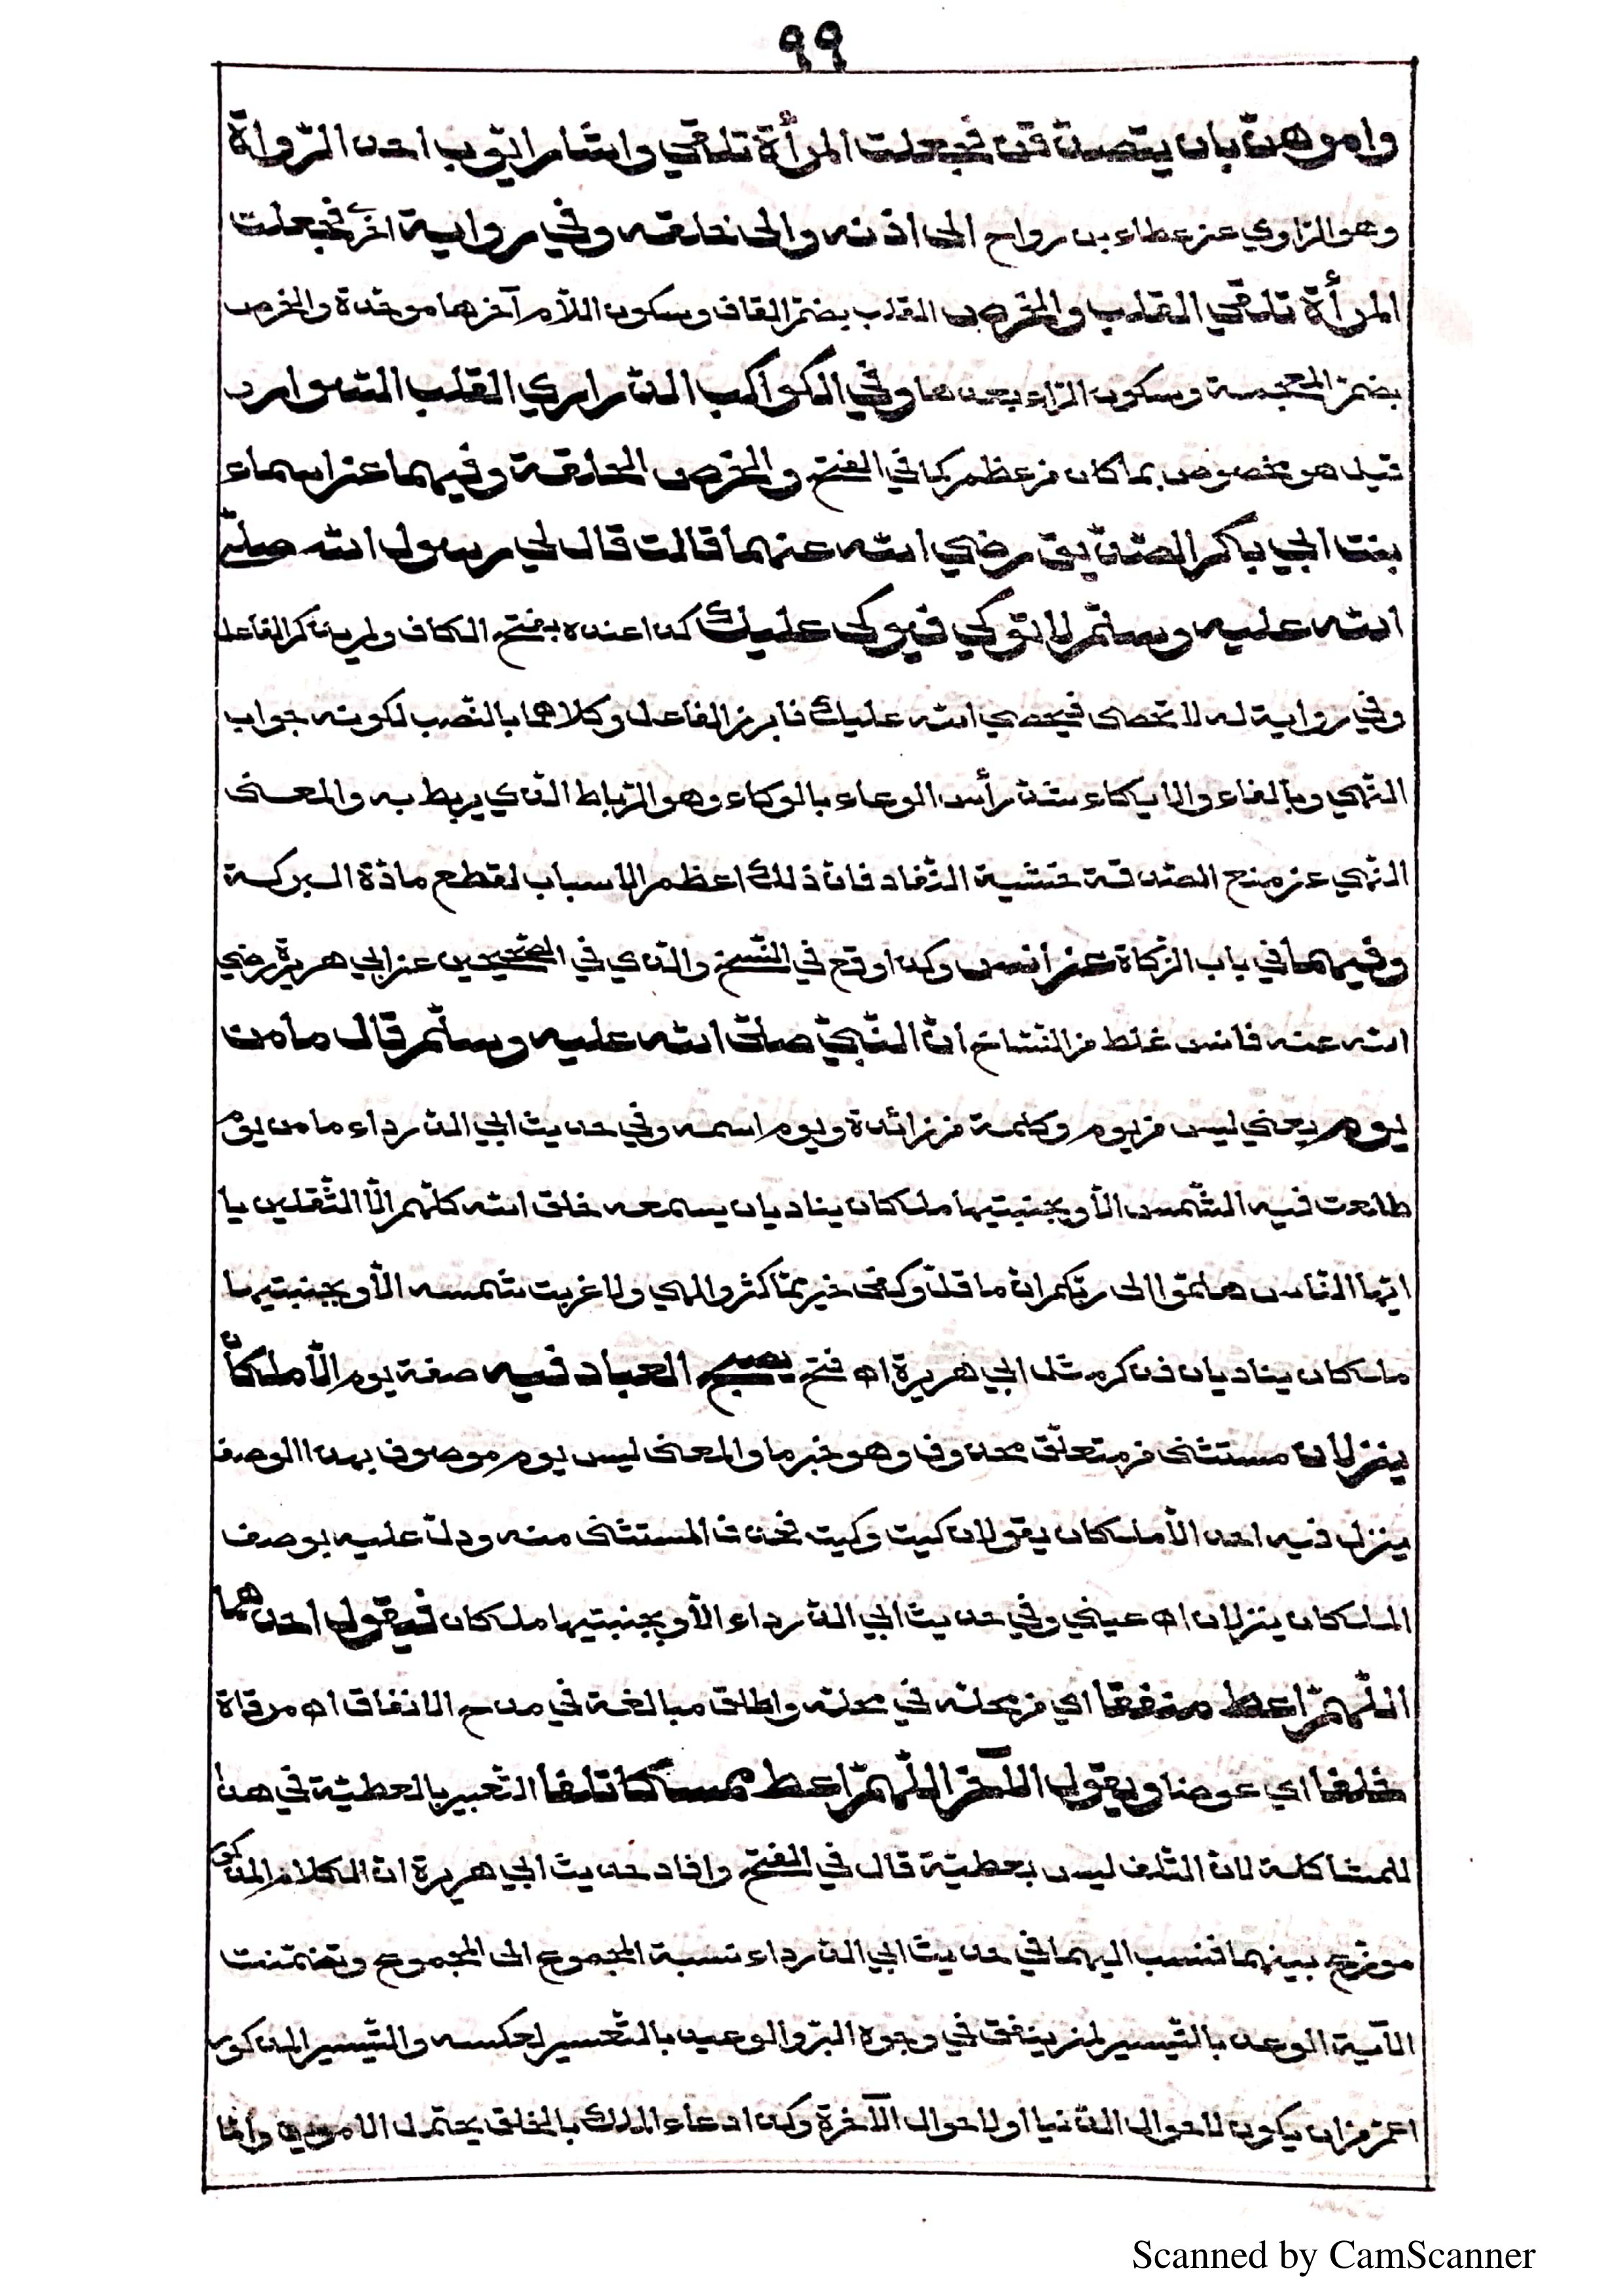 ٩٩
وامرهنّ بان يتصدّقن فجعلت المرأة تلقي واشار ايّوب احد الرّواة
وهو الرّاوي عن عطاء بن رواح الى اذنه والى حلقه وفي رواية اخرى فجعلت
المرأة تلقي القلب والخرص القلب بضمّ القاف وسكون اللّام آخرها موحّدة والخرص
بضمّ المعجمة وسكون الرّاء بعدها وفي الكواكب الدّراري القلب السّوار
قيل هو مخصوص بما كان من عظم كما في الفتح والخرص الحلقة وفيهما عن اسماء
بنت ابي باكر الصّدّيق رضي الله عنهما قالت قال لي رسول الله صلّى
الله عليه وسلّم لا توكي فيوكى عليك كذا عنده بفتح الكاف ولم يذكر الفاعل
وفي رواية له لا تحصى فيحصي الله عليك فابرز الفاعل وكلاهما بالنّصب لكونه جواب
النّهي وبالفاء والايكاء شدّ رأس الوعاء بالوكاء وهو الرّباط الذي يربط به والمعنى
النّهي عن منع الصّدقة خشية النّفاد فانّ ذلك اعظم الاسباب لقطع مادّة البركة
وفيهما في باب الزّكاة عن أنس وكذا وقع في النّسخ والذي في الصّحيحين عن ابي هريرة رضي
الله عنه فانس غلط من النّسّاخ أنّ النّبيّ صلّى الله عليه وسلّم قال ما من
يوم يعني ليس من يوم وكلمة من زائدة ويوم اسمه وفي حديث ابي الدّرداء ما من يوم
طلعت فيه الشّمس الّا وبجنبتيها ملكان يناديان يسمعه خلق الله كلّهم الّا الثّقلين يا
ايّها النّاس هلمّوا الى ربّكم انّ ما قلّ وكفى خير ممّا كثر والهي ولا غربت شمسه الّا وبجنبتيها
ملكان يناديان فذكر مثل ابي هريرة اه فتح يصبح العباد فيه صفة يوم الّا ملكان
ينزلان مستثنى من متعلّق محذوف وهو خبر ما والمعنى ليس يوم موصوف بهذا الوصف
ينزل فيه احد الّا ملكان يقولان كيت وكيت فحذف المستثنى منه ودلّ عليه بوصف
الملكان ينزلان اه عيني وفي حديث ابي الدّرداء الّا وبجنبتيها ملكان فيقول احدهما
اللّهمّ اعط منفقا اي من محلّه في محلّه واطلق مبالغة في مدح الانفاق اه مرقاة
خلفا اي عوضا ويقول الآخر اللّهمّ اعط ممسكا تلفا التّعبير بالعطيّة في هذا
للمشاكلة لانّ التّلف ليس بعطيّة قال في الفتح وافاد حديث ابي هريرة انّ الكلام المذكور
موزّع بينهما فنسب اليهما في حديث ابي الدّرداء نسبة المجموع الى المجموع وتضمّنت
الآية الوعد بالتّيسير لمن ينفق في وجوه البرّ والوعيد بالتّعسير لعكسه والتّيسير المذكور
اعمّ من ان يكون لاحوال الدّنيا او لاحوال الآخرة وكذا دعاء الملك بالخلق يحتمل الامرين وامّا
Scanned by CamScanner